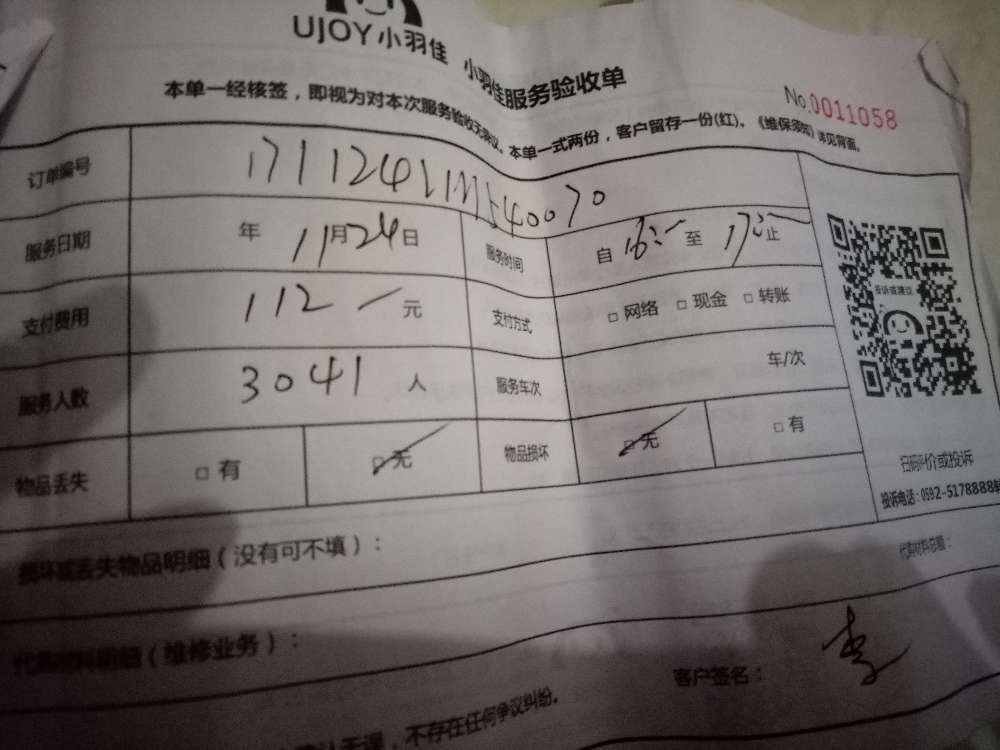 UJOY小羽佳 小羽佳服务验收单
No.0011058
本单一经核签，即视为对本次服务验收无异议。本单一式两份，客户留存一份(红)。《维保须知》详见背面。
订单编号
服务日期 年 11月24日 服务时间 自 16:一 至 17:一 止
支付费用 112一 元 支付方式 □ 网络 □ 现金 □ 转账
服务人数 3041 人 服务车次 车/次
物品丢失 □ 有 □ 无 物品损坏 □ 无 □ 有
投诉或建议
扫码评价或投诉
投诉电话：0592-5178888转
损坏或丢失物品明细（没有可不填）：
代购材料总额：
代购材料明细（维修业务）：
客户签名：李
确认无误，不存在任何争议纠纷。